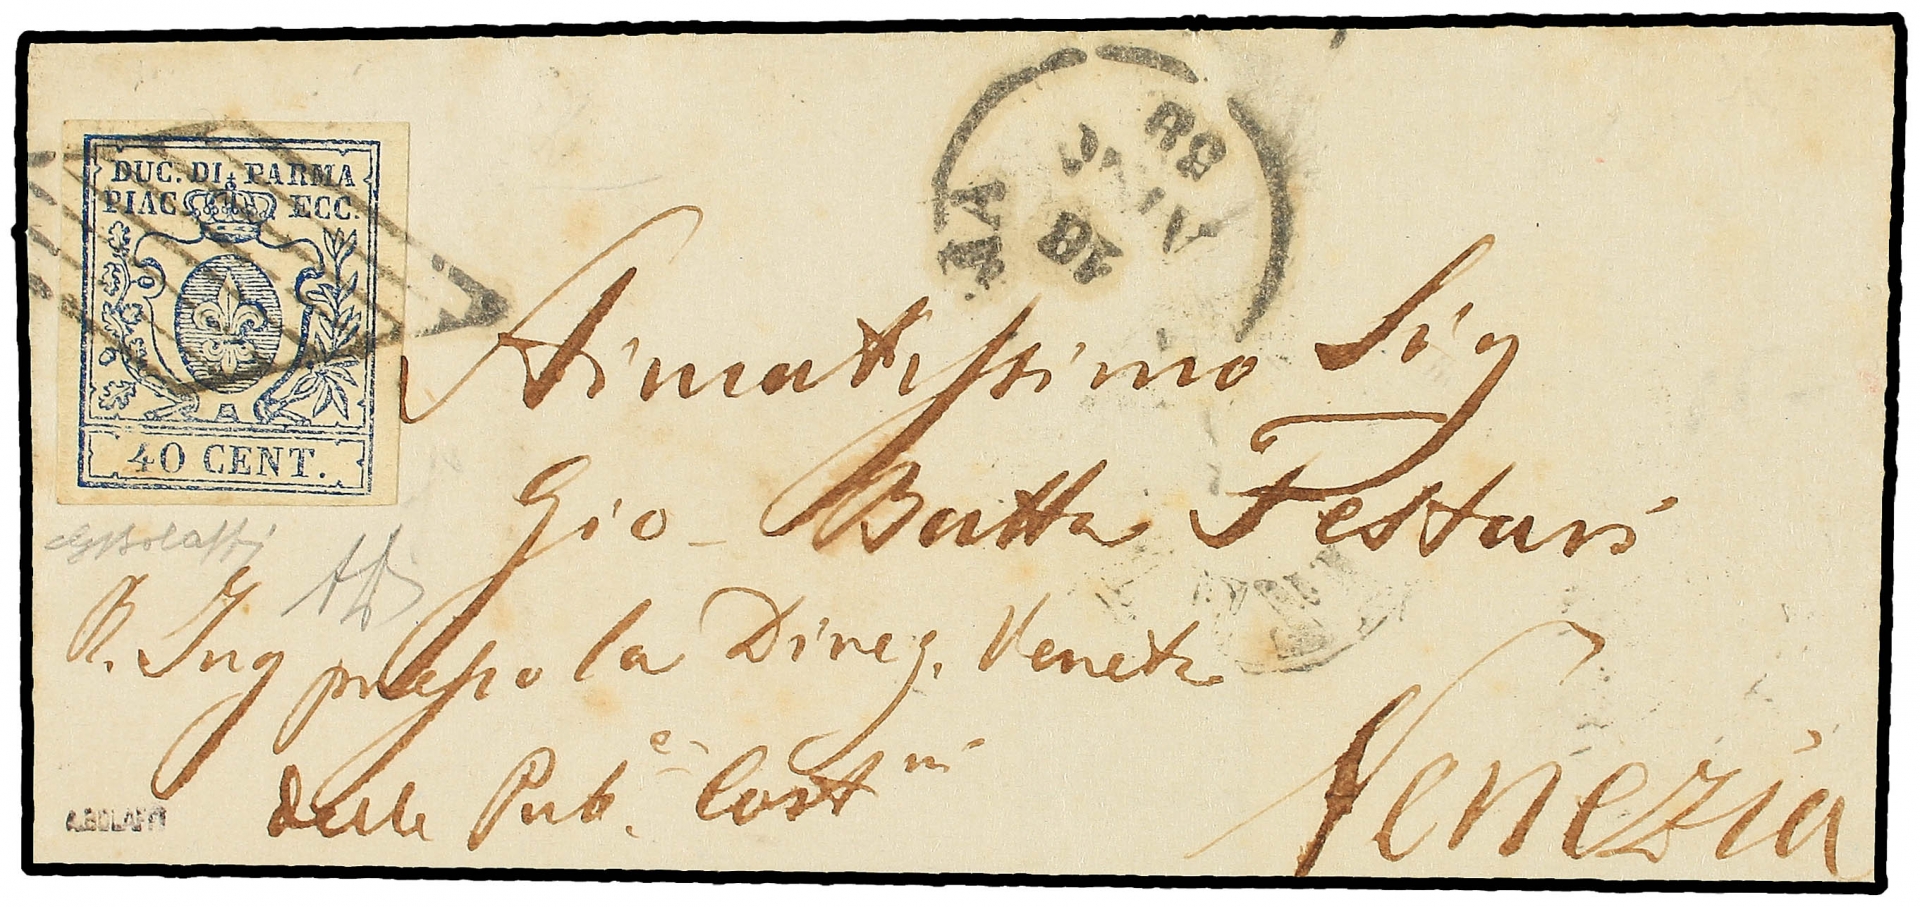 DUC. DI PARMA
PIAC. ECC.
40 CENT.
18
58
Aimatissimo Sig
Gio- Batta Festari
R. Ing presso la Direz. Veneta
delle Pub.e Cost.ni
Venezia
A. BOLAFFI